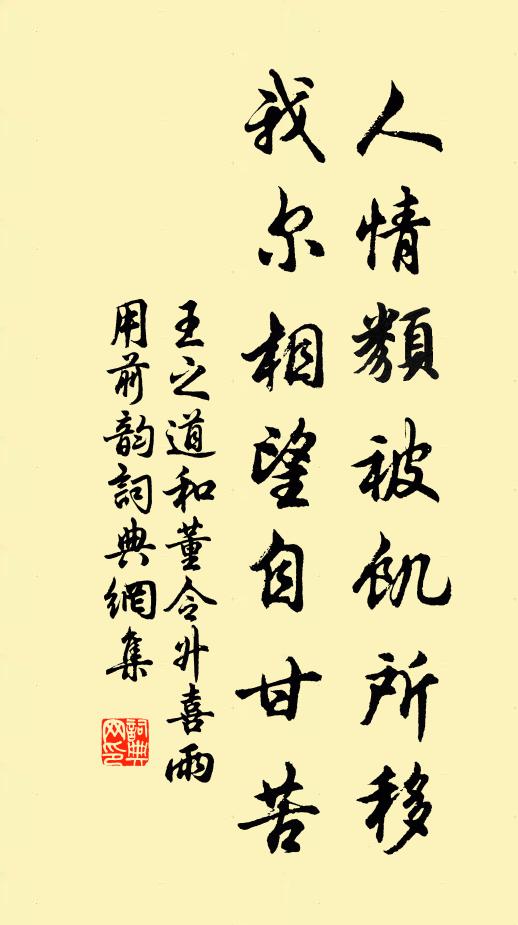 人情類被飢所移
我尔相望自甘苦
王之道和董令升喜雨
用前韵詞典網集
詞典网印